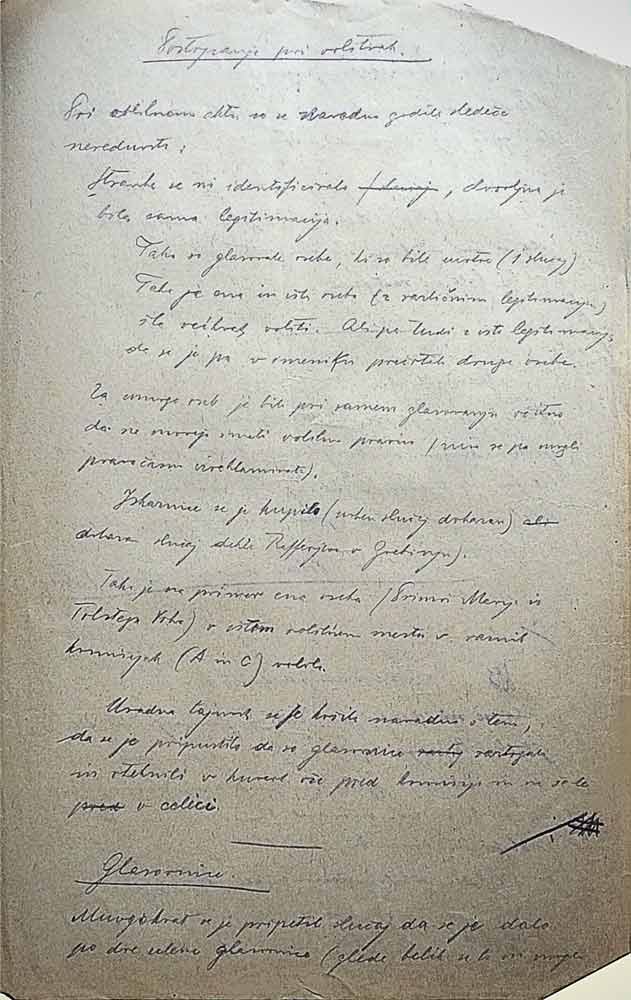 Postopanje pri volitvah.
Pri volilnem aktu so se navadno godile sledeče
nerednosti:
Stranke se ni identificiralo, dovoljna je
bila sama legitimacija.
Tako so glasovale osebe, ki so bile mrtve (1 slučaj)
Tako je ena in ista oseba (z različnimi legitimacijami)
šla večkrat voliti. Ali pa tudi z isto legitimacijo,
da se je pa v imeniku prečrtala druga oseba.
Za mnogo oseb je bilo pri samem glasovanju očitno
da ne morejo imati volilne pravice (niso se pa mogli
pravočasno izreklamirati).
Izkaznice se je kupilo (en slučaj dokazan)
dokazan slučaj v Grebinju).
Tako je na primer ena oseba (Marija iz
Tolstega Vrha) v istem volilnem mestu v raznih
komisijah (A in C) volila.
Uradna tajnost se je kršila navadno s tem,
da se je pripustilo da so glasovnice raztrgali
in vteknili v kuvert vže pred komisijo in ne šele
v celici.
Glasovnice.
Mnogokrat se je pripetil slučaj da se je dalo
po dve zelene glasovnice (glede belih se to ni moglo